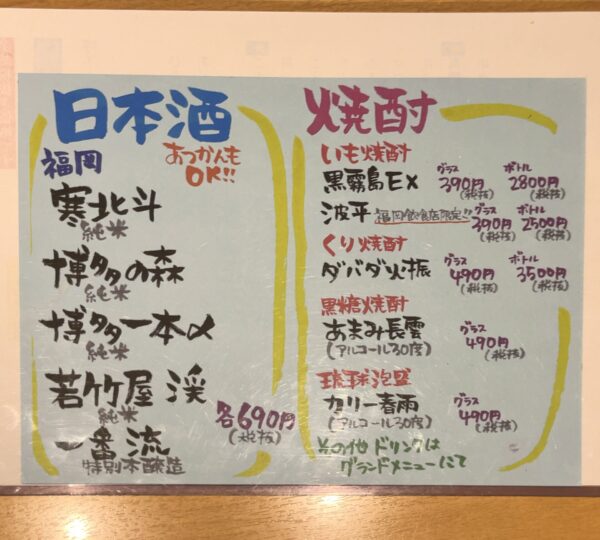 日本酒
福岡
あつかんも
OK!!
寒北斗
純米
博多の森
純米
博多一本〆
純米
若竹屋 渓
純米
一番流
特別本醸造
各690円
(税抜)
焼酎
いも焼酎
黒霧島EX グラス 390円(税抜) ボトル 2800円(税抜)
波平 福岡飲食店限定!! グラス 390円(税抜) ボトル 2500円(税抜)
くり焼酎
ダバダ火振 グラス 490円(税抜) ボトル 3500円(税抜)
黒糖焼酎
あまみ長雲 グラス 490円(税抜)
(アルコール30度)
琉球泡盛
カリー春雨 グラス 490円(税抜)
(アルコール30度)
その他ドリンクは
グランドメニューにて